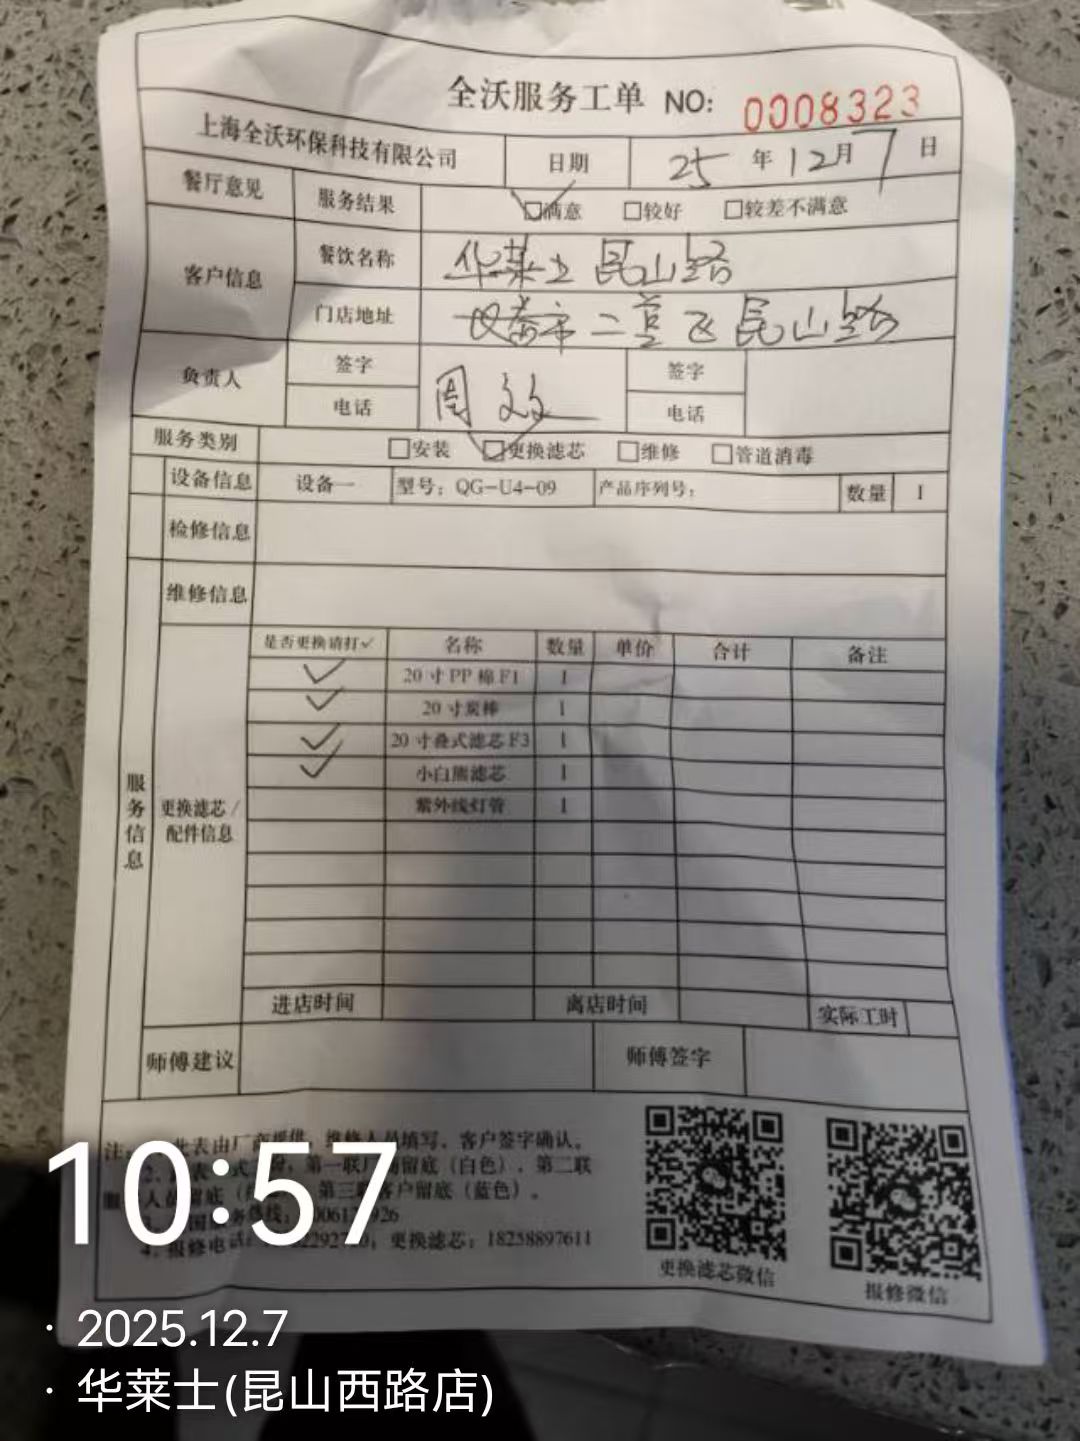 全沃服务工单 NO: 0008323
上海全沃环保科技有限公司 日期 25年12月7日
餐厅意见 服务结果 ☑满意 □较好 □较差不满意
客户信息 餐饮名称 华莱士昆山路
门店地址 二道区昆山路
负责人 签字 周 签字
电话 电话
服务类别 □安装 ☑更换滤芯 □维修 □管道消毒
设备信息 设备一 型号：QG-U4-09 产品序列号： 数量 1
检修信息
维修信息
服务信息
更换滤芯/配件信息
是否更换请打✓ 名称 数量 单价 合计 备注
✓ 20寸PP棉F1 1
✓ 20寸炭棒 1
✓ 20寸叠式滤芯F3 1
✓ 小白熊滤芯 1
紫外线灯管 1
进店时间 离店时间 实际工时
师傅建议 师傅签字
注 此表由厂商提供，维修人员填写、客户签字确认。
2、 表 式 第一联厂商留底（白色）、第二联
人员留底 第三联客户留底（蓝色）。
4、报修电话： 更换滤芯：18258897611
更换滤芯微信
报修微信
10:57
· 2025.12.7
· 华莱士(昆山西路店)